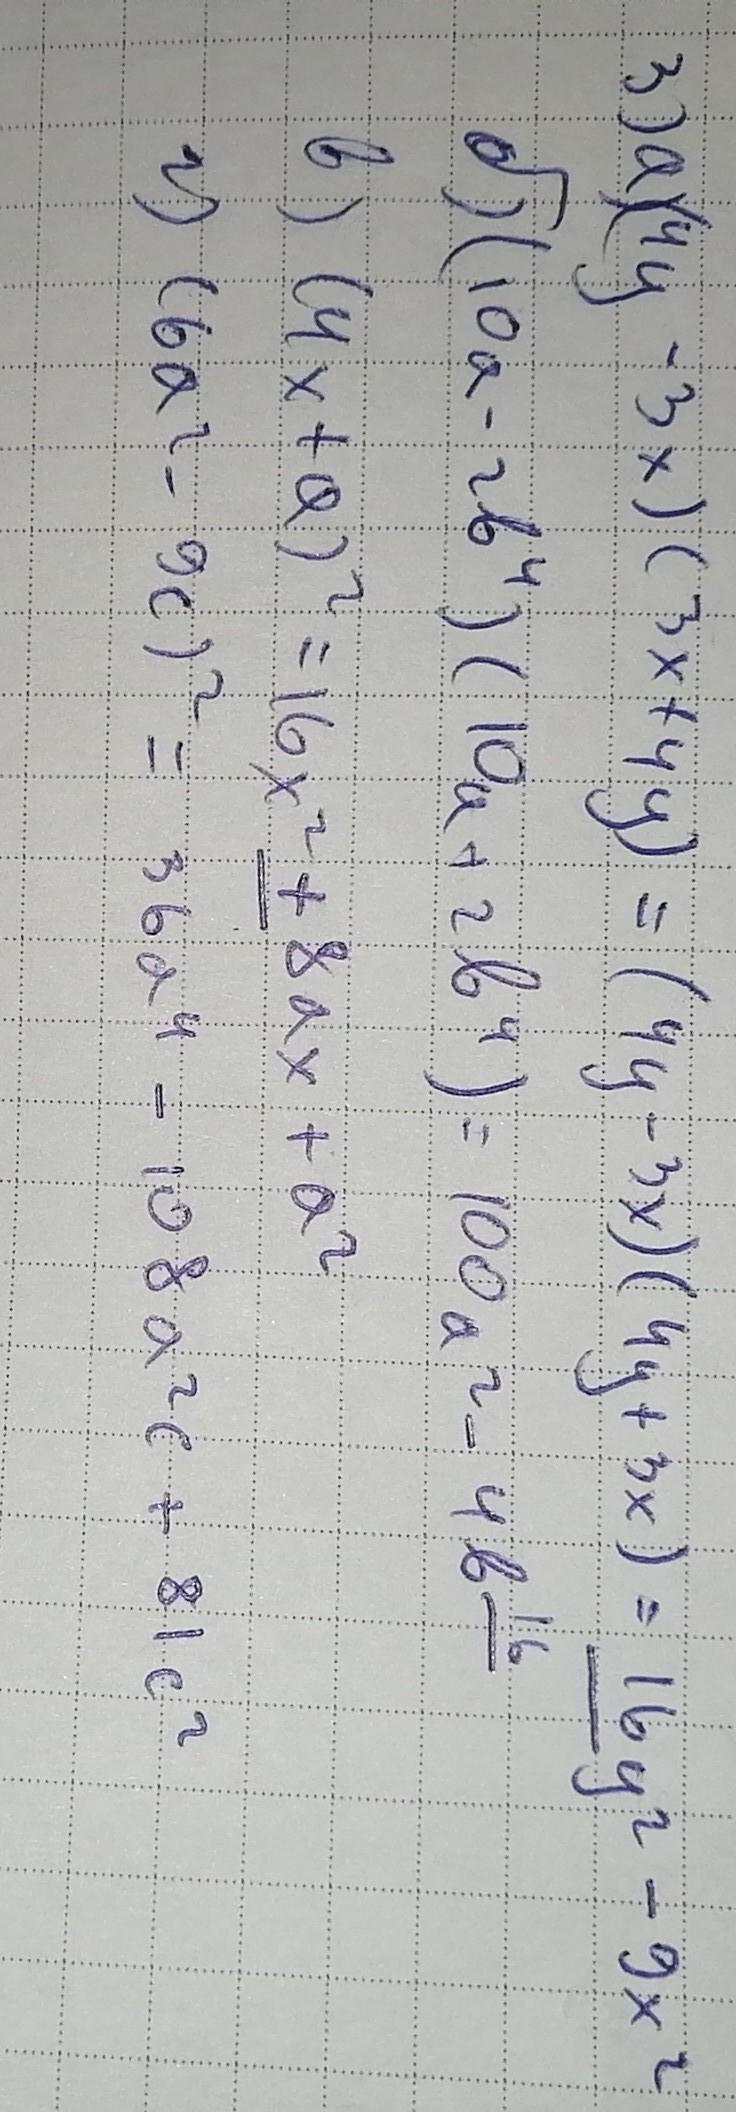 3) а) (4y - 3x)(3x + 4y) = (4y - 3x)(4y + 3x) = 16y² - 9x²
б) (10a - 2b⁴)(10a + 2b⁴) = 100a² - 4b¹⁶
в) (4x + a)² = 16x² + 8ax + a²
г) (6a² - 9c)² = 36a⁴ - 108a²c + 81c²